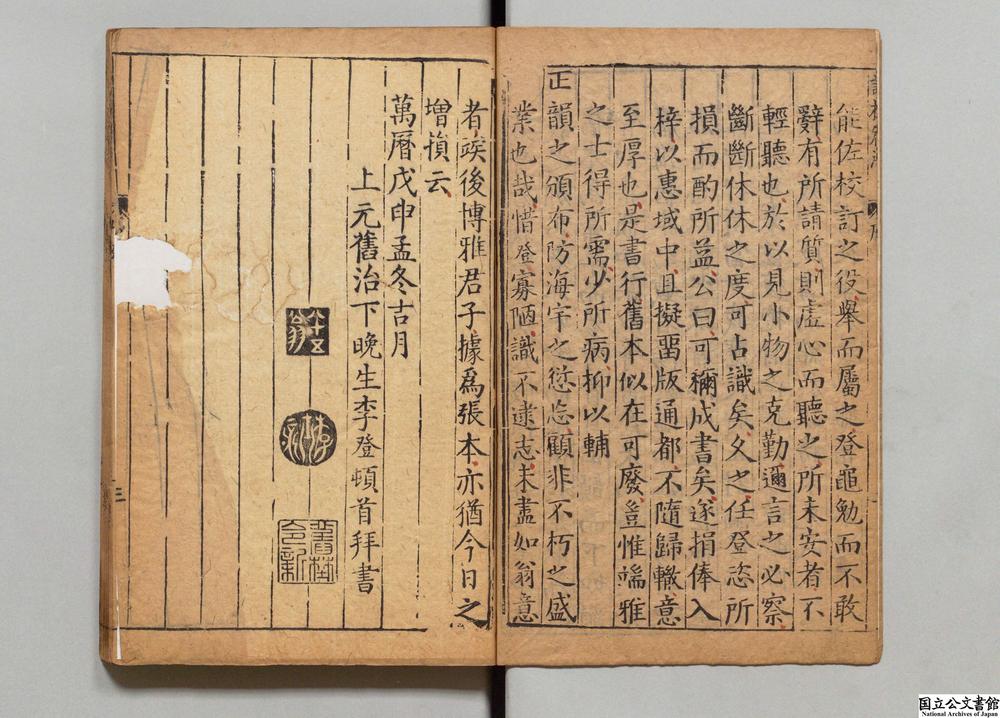 能佐校訂之役舉而屬之登黽勉而不敢
辭有所請質則虛心而聽之所未安者不
輕聽也於以見小物之克勤邇言之必察
斷斷休休之度可占識矣久之任登恣所
損而酌所益公曰可稱成書矣遂捐俸入
梓以惠域中且擬畱版通都不隨歸轍意
至厚也是書行舊本似在可廢豈惟端雅
之士得所需少所病抑以輔
正韻之頒布防海宇之愆忘顧非不朽之盛
業也哉惜登寡陋識不逮志未盡如翁意
者竢後博雅君子據爲張本亦猶今日之
增損云
萬曆戊申孟冬吉月
上元舊治下晚生李登頓首拜書
八十五翁
三
国立公文書館
National Archives of Japan